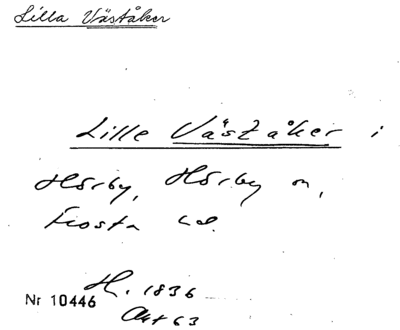 Lilla Väståker
Lille Väståker i
Hörby, Hörby sn,
Frosta hd.
H. 1836
Nr 10446
Akt 63